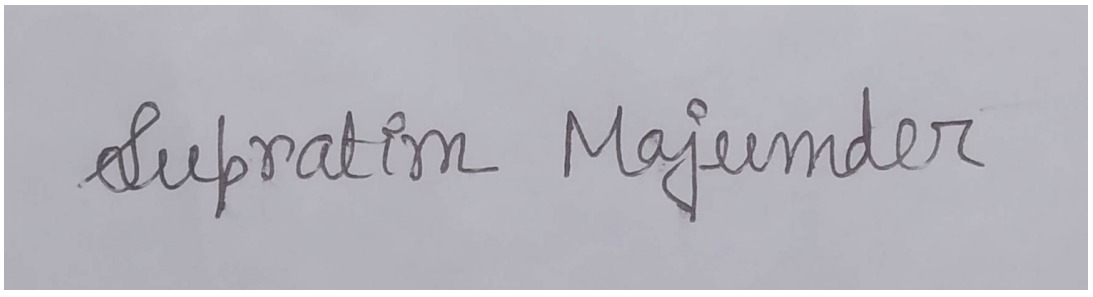 Supratim Majumder